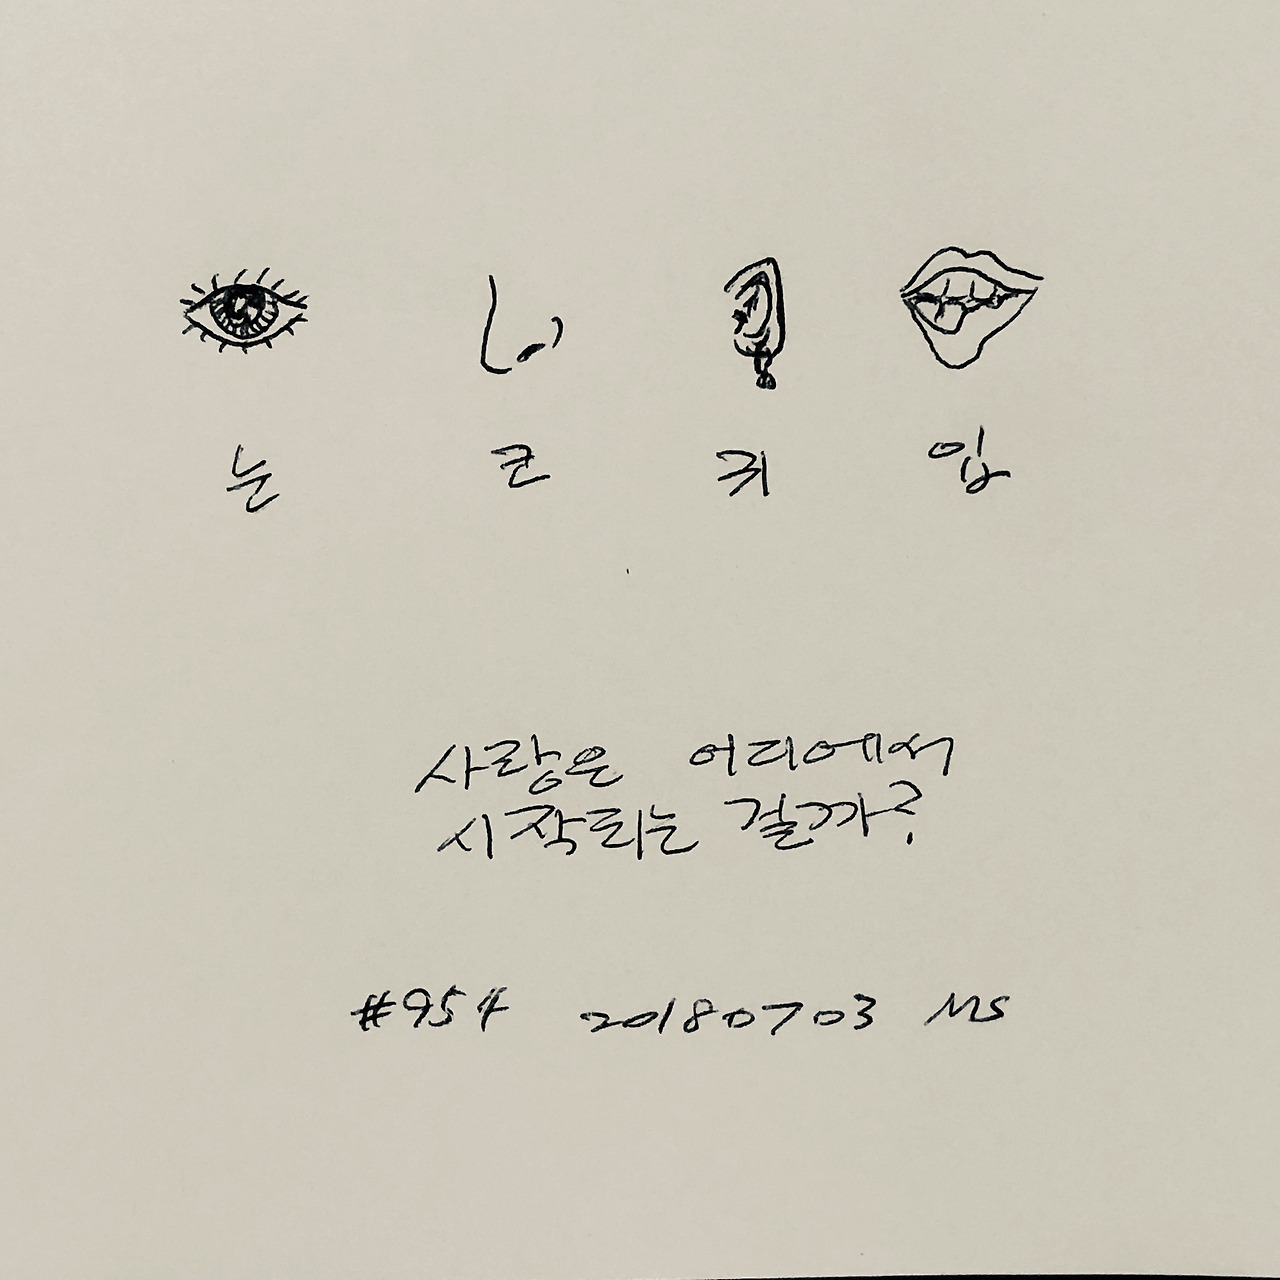 눈 코 귀 입
사랑은 어디에서
시작되는 걸까?
#954 20180703 MS